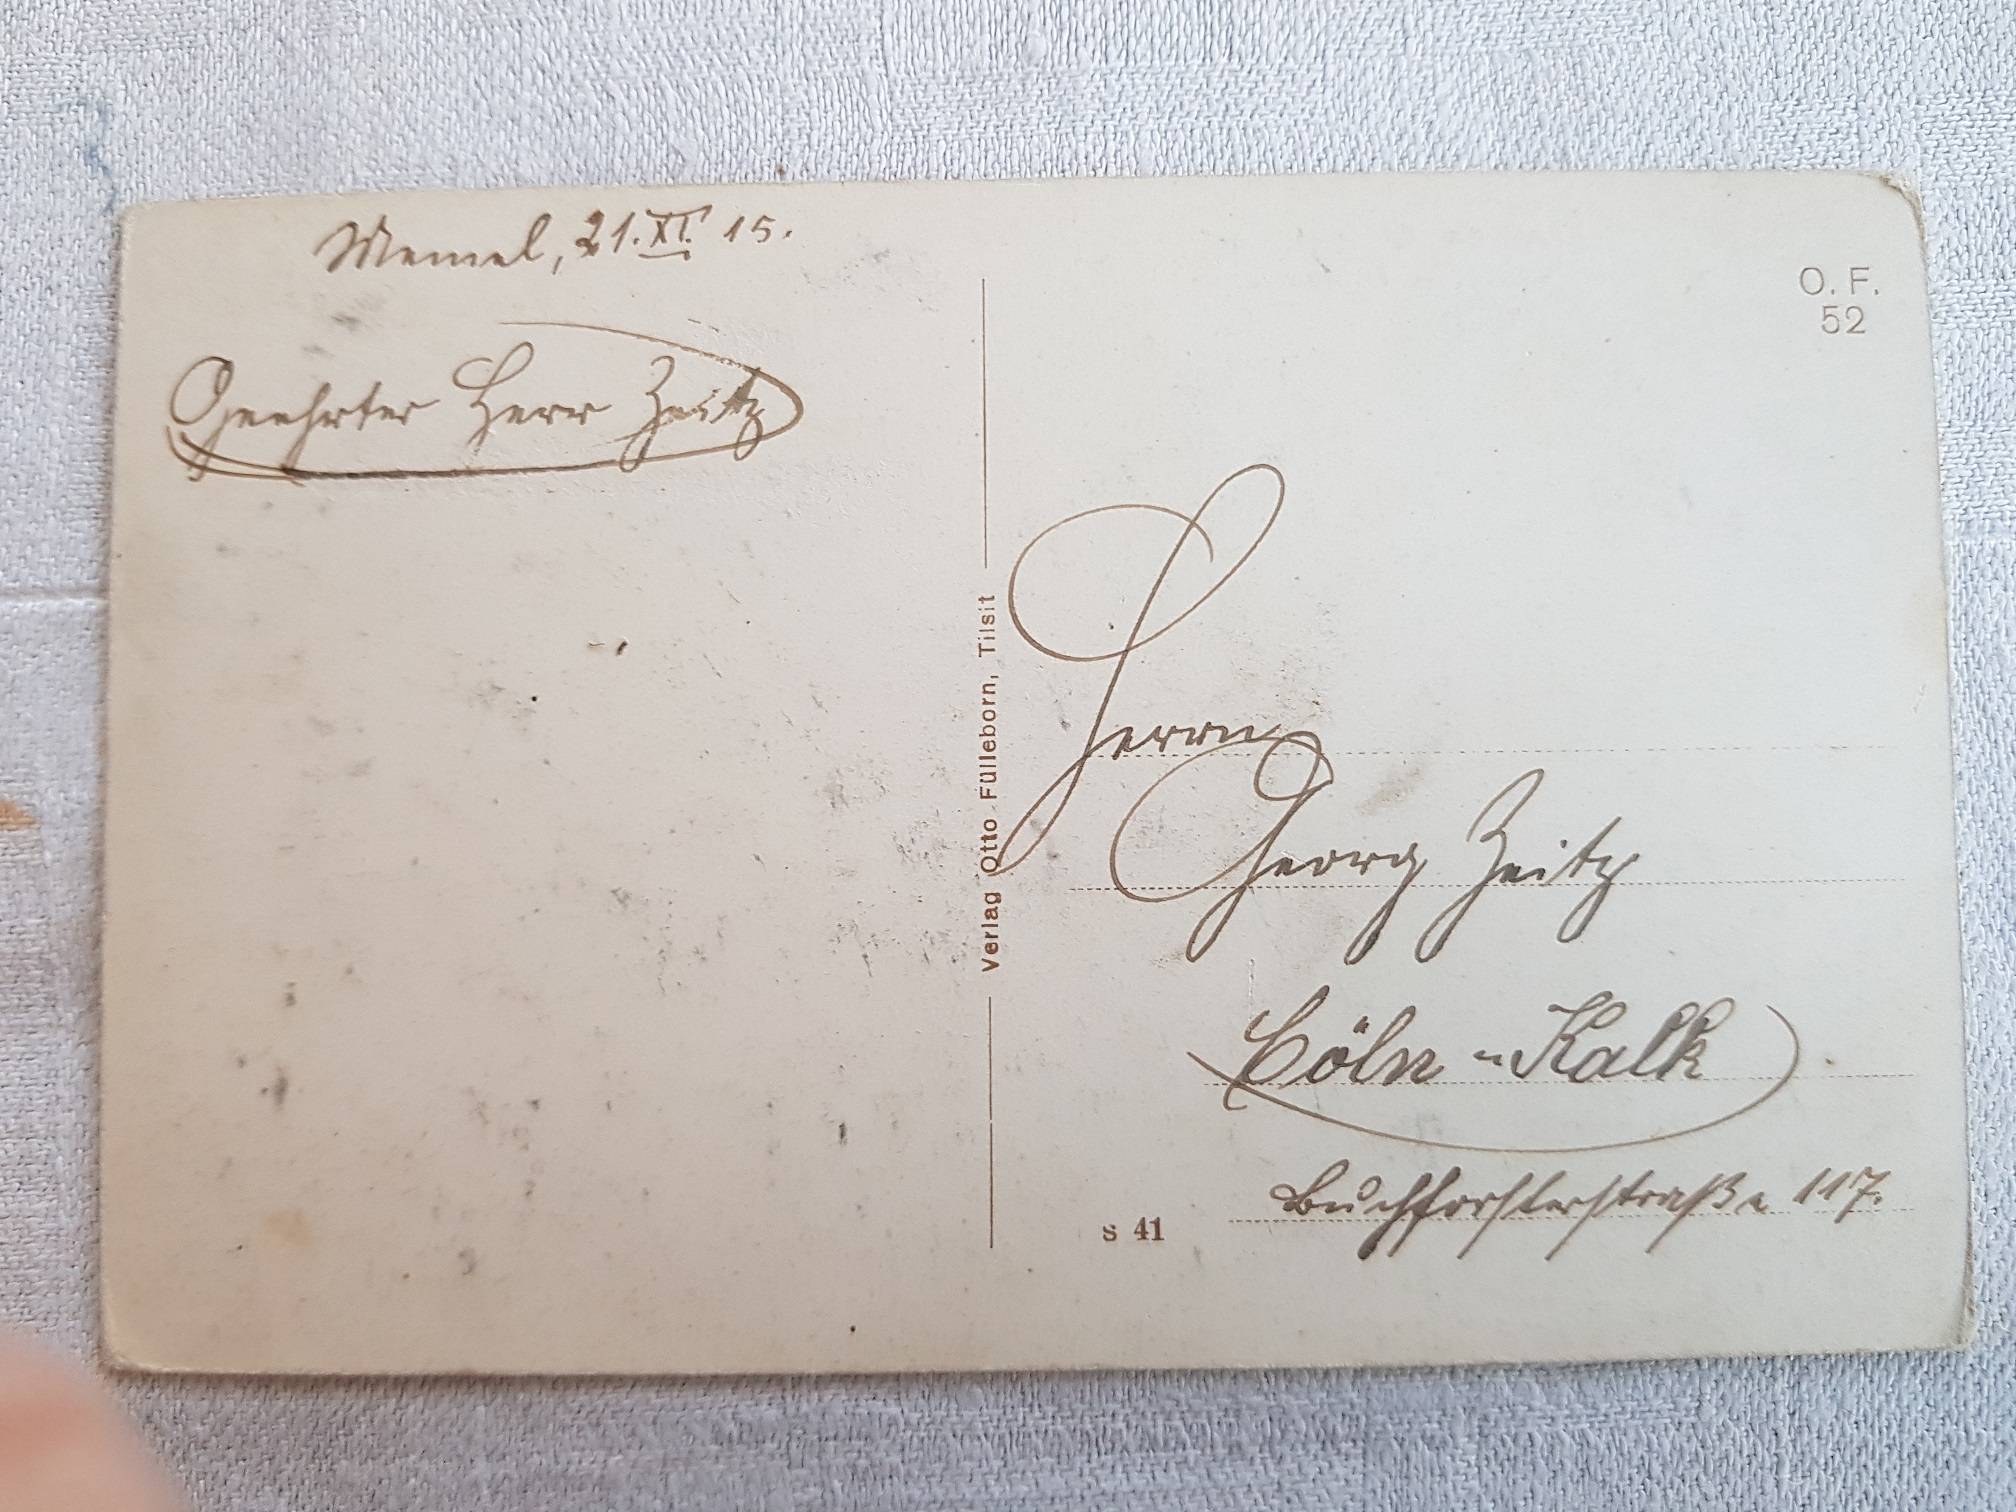 Memel, 21. XI. 15.
Geehrter Herr Zeitz
O. F.
52
Verlag Otto Fülleborn, Tilsit
Herrn
Georg Zeitz
Cöln-Kalk
Buchforsterstraße 117.
s 41